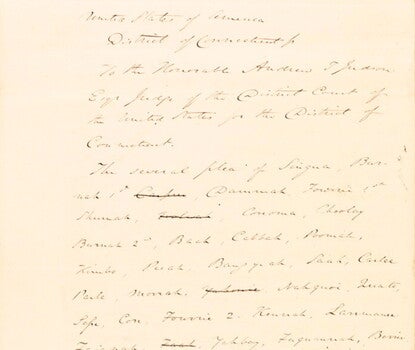 United States of America
District of Connecticut
To the Honorable Andrew T Judson
Esqr Judge of the District Court of
the United States for the District of
Connecticut.
The several pleas of Singua, Bur-
nah 1st, Dammah, Fourrie 1st
Shumah, Conoma, Chooley
Burnah 2d, Baah, Cabbah, Poomah,
Kimbo, Peeah, Bangyeah, Saah, Carlee
Parle, Morrah, Nahquoi, Quato,
Sese, Con, Fourrie 2, Kennah, Lammane
Fajanah, Yahboy, Faguannah, Berrie